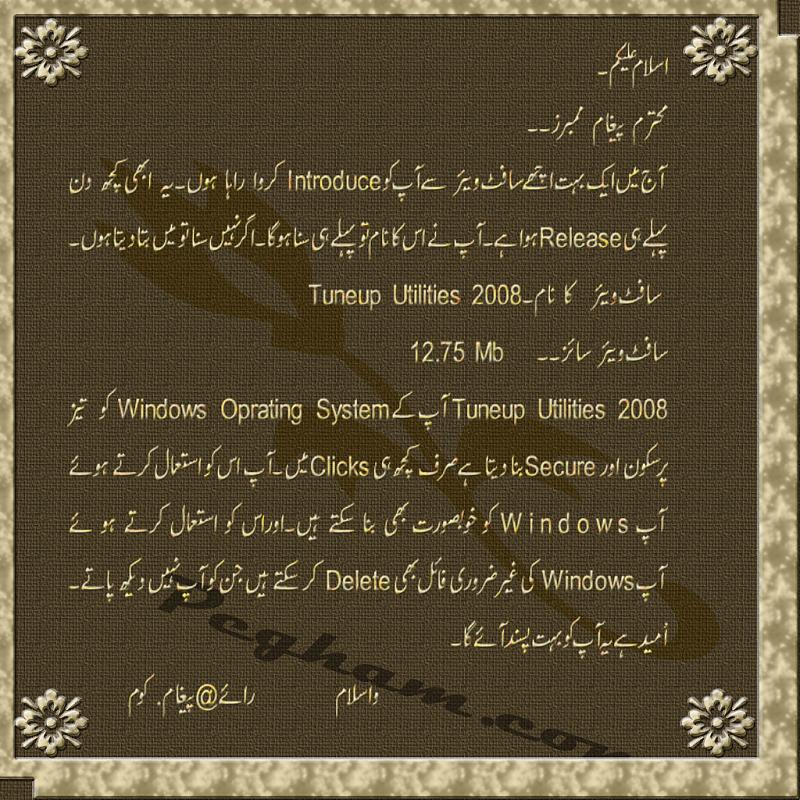 اسلام علیکم۔
محترم پیغام ممبرز۔۔
آج میں ایک بہت اچھے سافٹ ویئر سے آپ کو Introduce کروا راہا ہوں۔ یہ ابھی کچھ دن
پہلے ہی Release ہوا ہے۔ آپ نے اس کا نام تو پہلے ہی سنا ہوگا۔ اگر نہیں سنا تو میں بتا دیتا ہوں۔
سافٹ ویئر کا نام۔ Tuneup Utilities 2008
سافٹ ویئر سائز۔۔ 12.75 Mb
Tuneup Utilities 2008 آپ کے Windows Oprating System کو تیز
پرسکون اور Secure بنا دیتا ہے صرف کچھ ہی Clicks میں۔ آپ اس کو استعمال کرتے ہوئے
آپ Windows کو خوبصورت بھی بنا سکتے ہیں۔ اور اس کو استعمال کرتے ہوئے
آپ Windows کی غیر ضروری فائل بھی Delete کر سکتے ہیں جن کو آپ نہیں دیکھ پاتے۔
اُمید ہے یہ آپ کو بہت پسند آئے گا۔
واسلام رائے@پیغام. کوم
Pegham.com